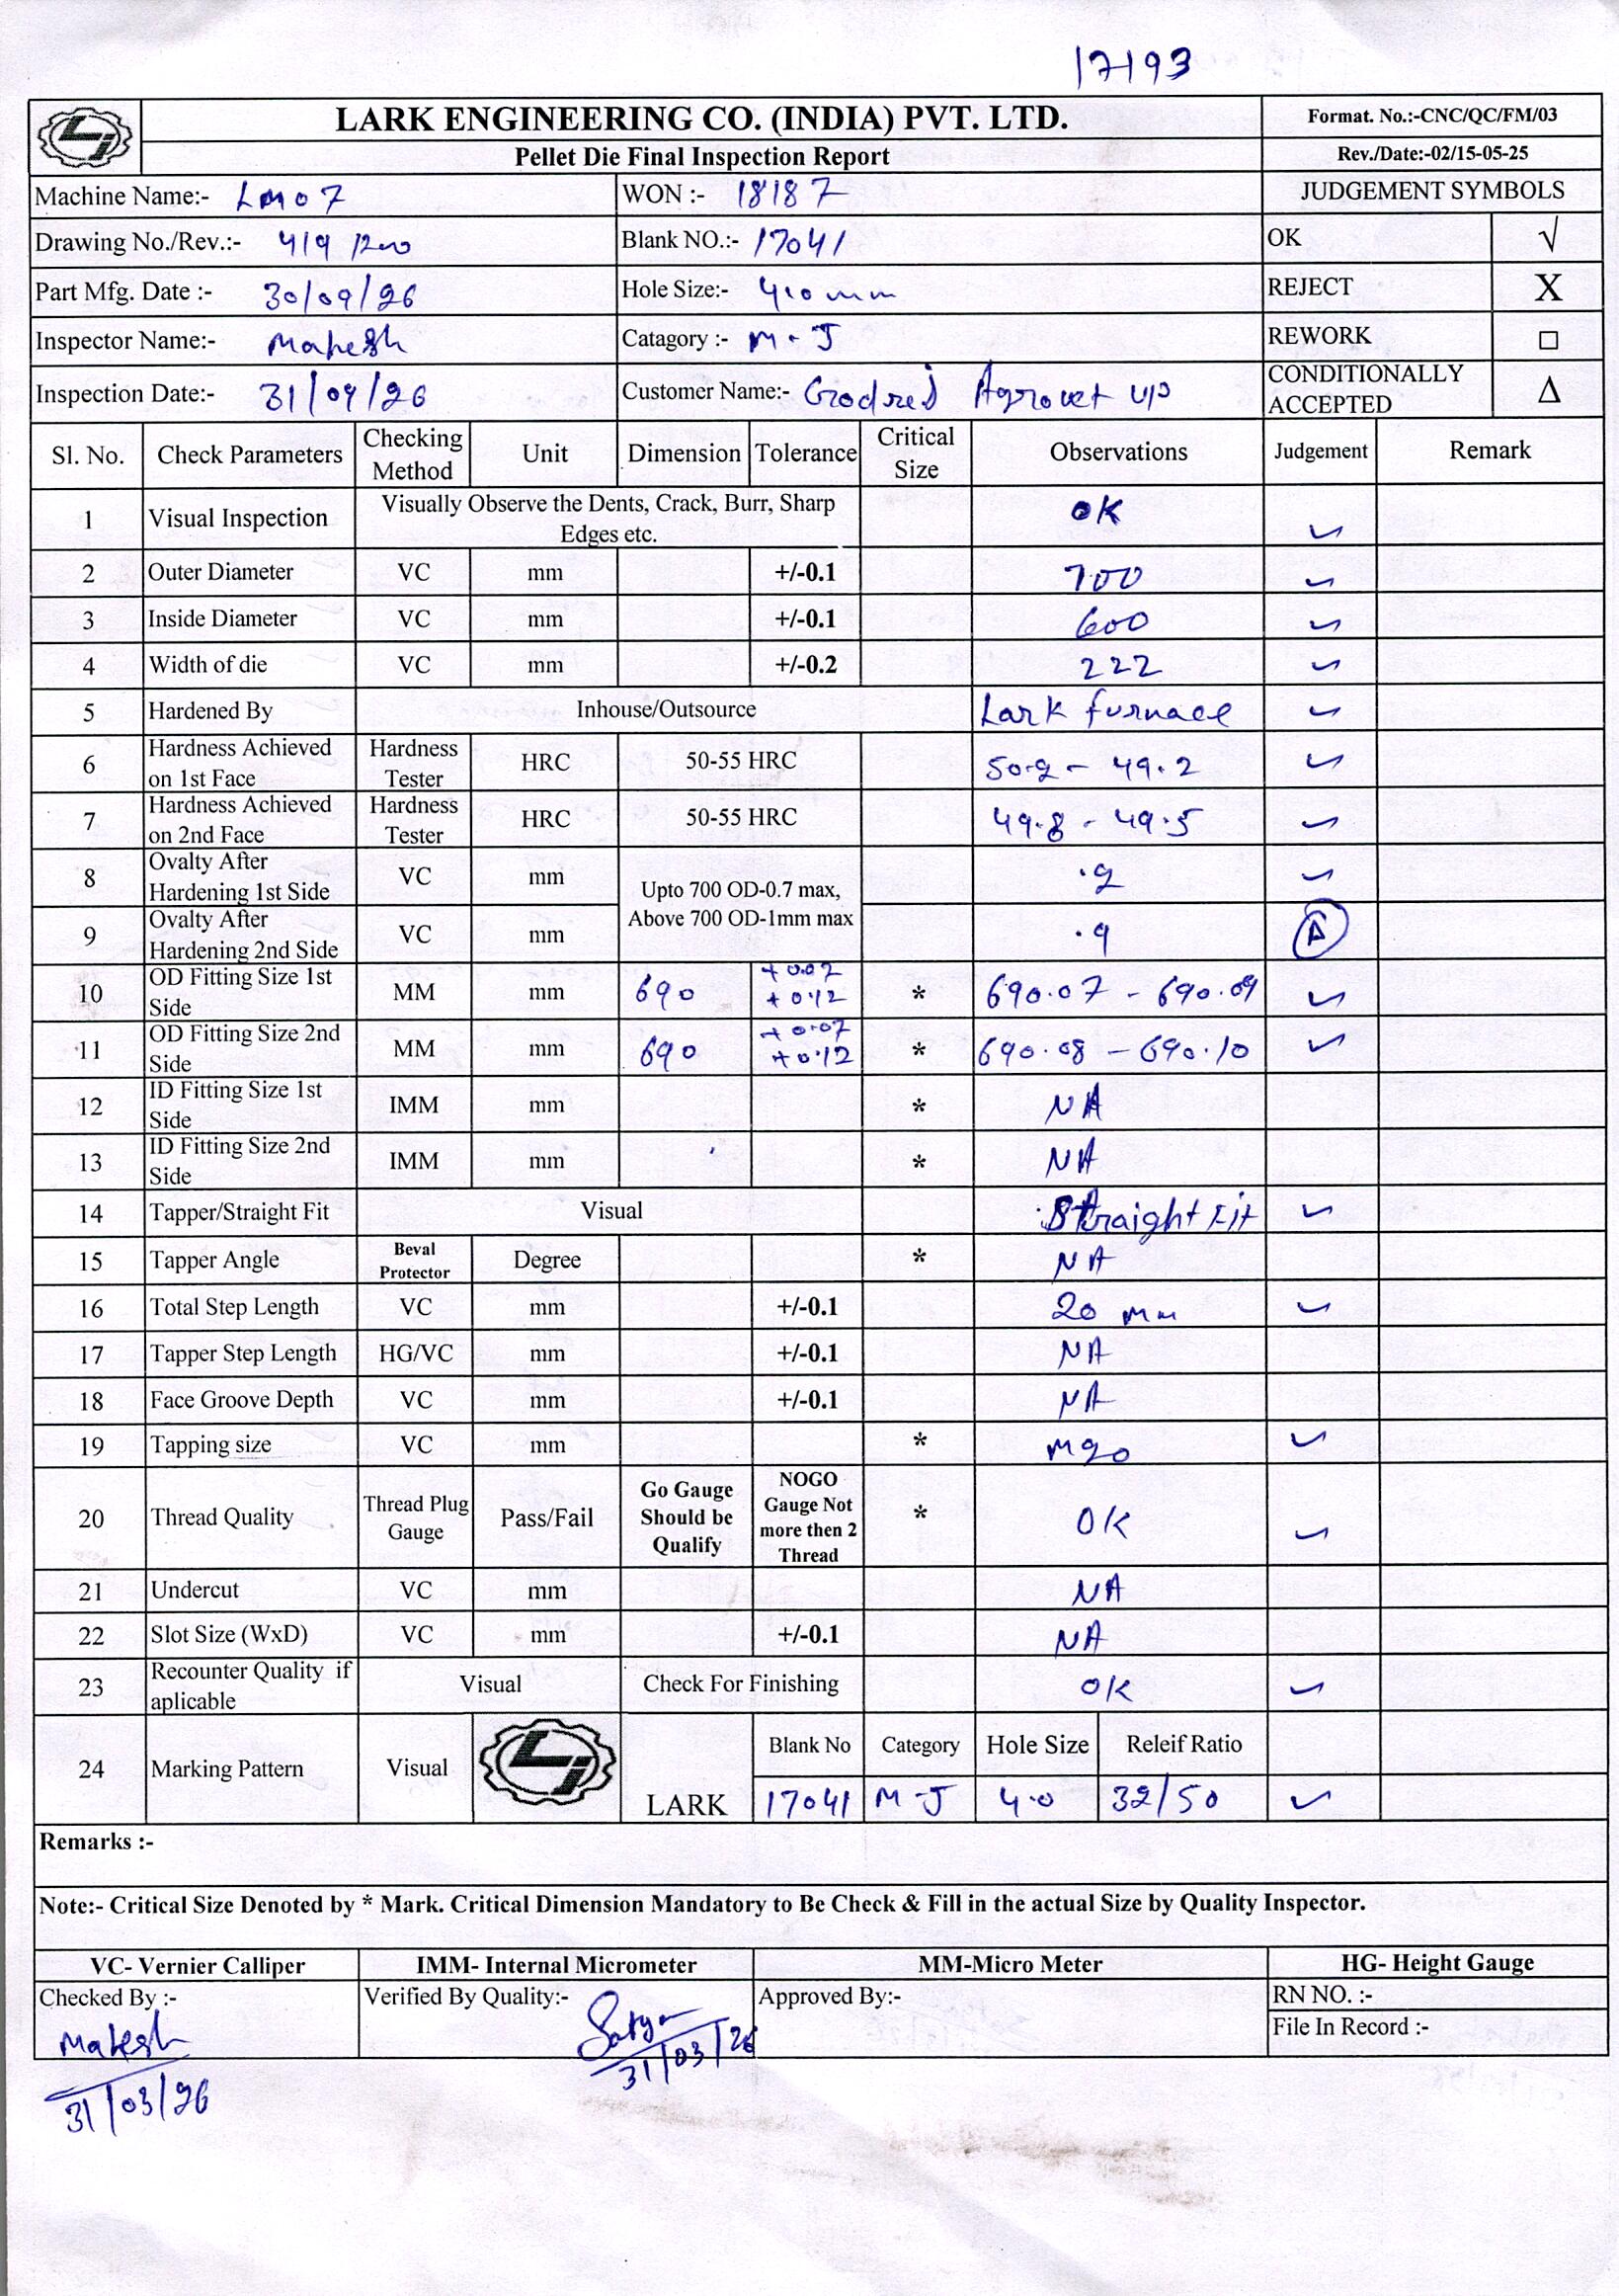 17193
LARK ENGINEERING CO. (INDIA) PVT. LTD.
Format. No.:-CNC/QC/FM/03
Pellet Die Final Inspection Report
Rev./Date:-02/15-05-25
Machine Name:- LM07
WON :- 18187
JUDGEMENT SYMBOLS
Drawing No./Rev.:- 419
Blank NO.:- 17041
OK √
Part Mfg. Date :- 30/09/26
Hole Size:- 4.0 mm
REJECT X
Inspector Name:- Mahesh
Catagory :- M-J
REWORK □
Inspection Date:- 31/09/26
Customer Name:- Godrej Agrovet
CONDITIONALLY ACCEPTED Δ
Sl. No. Check Parameters Checking Method Unit Dimension Tolerance Critical Size Observations Judgement Remark
1 Visual Inspection Visually Observe the Dents, Crack, Burr, Sharp Edges etc. OK ✓
2 Outer Diameter VC mm +/-0.1 700 ✓
3 Inside Diameter VC mm +/-0.1 600 ✓
4 Width of die VC mm +/-0.2 222 ✓
5 Hardened By Inhouse/Outsource Lark furnace ✓
6 Hardness Achieved on 1st Face Hardness Tester HRC 50-55 HRC 50.2 - 49.2 ✓
7 Hardness Achieved on 2nd Face Hardness Tester HRC 50-55 HRC 49.8 - 49.5 ✓
8 Ovalty After Hardening 1st Side VC mm Upto 700 OD-0.7 max, Above 700 OD-1mm max .2 ✓
9 Ovalty After Hardening 2nd Side VC mm .9 Δ
10 OD Fitting Size 1st Side MM mm 690 +0.07 +0.12 * 690.07 - 690.09 ✓
11 OD Fitting Size 2nd Side MM mm 690 +0.07 +0.12 * 690.08 - 690.10 ✓
12 ID Fitting Size 1st Side IMM mm * NA
13 ID Fitting Size 2nd Side IMM mm * NA
14 Tapper/Straight Fit Visual Straight Fit ✓
15 Tapper Angle Beval Protector Degree * NA
16 Total Step Length VC mm +/-0.1 20 mm ✓
17 Tapper Step Length HG/VC mm +/-0.1 NA
18 Face Groove Depth VC mm +/-0.1 NA
19 Tapping size VC mm * M20 ✓
20 Thread Quality Thread Plug Gauge Pass/Fail Go Gauge Should be Qualify NOGO Gauge Not more then 2 Thread * OK ✓
21 Undercut VC mm NA
22 Slot Size (WxD) VC mm +/-0.1 NA
23 Recounter Quality if aplicable Visual Check For Finishing OK ✓
24 Marking Pattern Visual LARK Blank No Category Hole Size Releif Ratio
17041 M-J 4.0 32/50 ✓
Remarks :-
Note:- Critical Size Denoted by * Mark. Critical Dimension Mandatory to Be Check & Fill in the actual Size by Quality Inspector.
VC- Vernier Calliper IMM- Internal Micrometer MM-Micro Meter HG- Height Gauge
Checked By :- Mahesh 31/03/26
Verified By Quality:- Satya 31/03/26
Approved By:-
RN NO. :-
File In Record :-